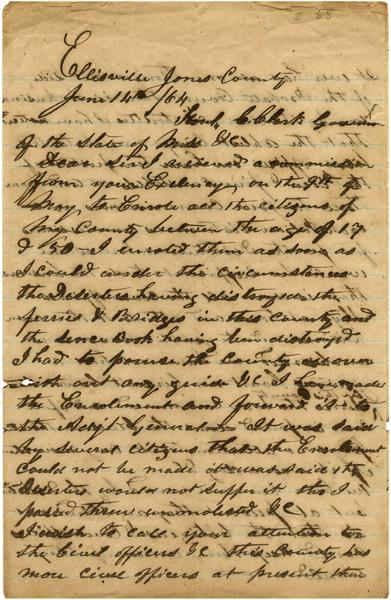 E 55
Ellisville Jones County
June 14th /64
Hon. C Clark Governor
of the State of Miss &C
Dear Sir I received a commission
from your Excelency on the 9th of
May, to Enrole all the citizens of
my County between the age of 17
& 50 I enroled them as soon as
I could under the circumstances
the Deserters having distroyed the
ferries & Bridges in this County and
the sence Book having been distroyd
I had to peruse the County all over
with out any guide &C I have made
the Enrolement and forward it to
the Adgt General It was said
by several citizens that the Enrolement
could not be made it was said the
Deserters would not suffer it tho I
passd them unmolested &C
I wish to call your attention to
the Civil officers &C this County has
more civil officers at present then